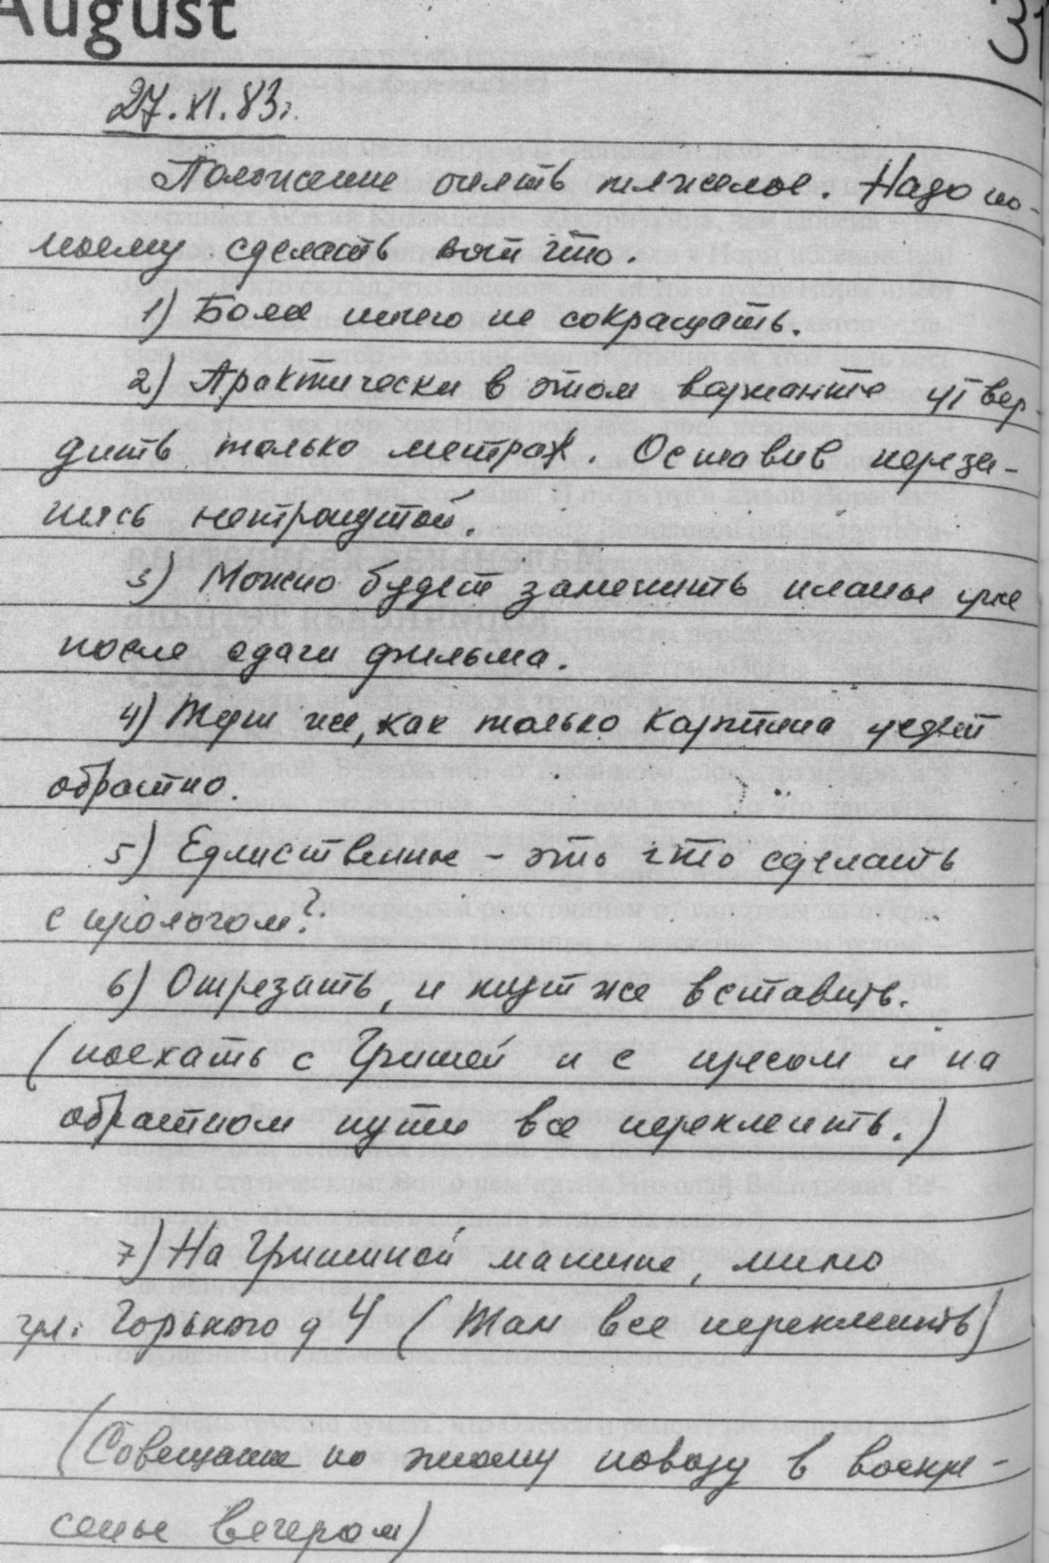 August 31
27.XI.83г.
Положение опять тяжелое. Надо по-
моему сделать вот что.
1) Более ничего не сокращать.
2) Практически в этом варианте утвер-
дить только метраж. Оставив перезе-
пись нетронутой.
3) Можно будет заменить планы уже
после сдачи фильма.
4) Тут же, как только картина уедет
обратно.
5) Единственное - это что сделать
с прологом?
6) Отрезать, и тут же вставить.
(поехать с Гришей и с прессом и на
обратном пути все переклеить.)
7) На Гришиной машине, мимо
ул. Горького д 4 (Там все переклеить)
(Совещание по этому поводу в воскре-
сенье вечером)